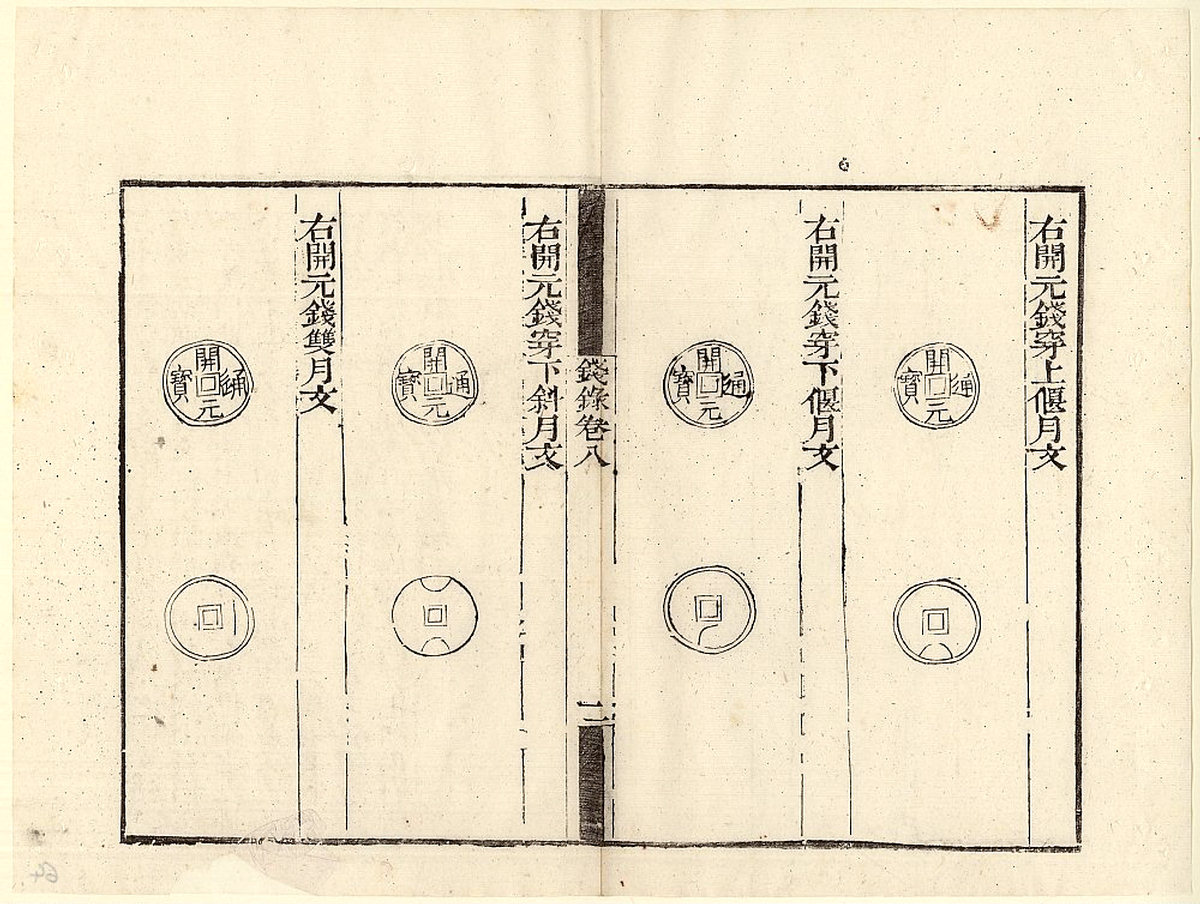 右開元錢穿上偃月文
開元通寶
右開元錢穿下偃月文
開元通寶
錢錄卷八
二
右開元錢穿下斜月文
開元通寶
右開元錢雙月文
開元通寶
64